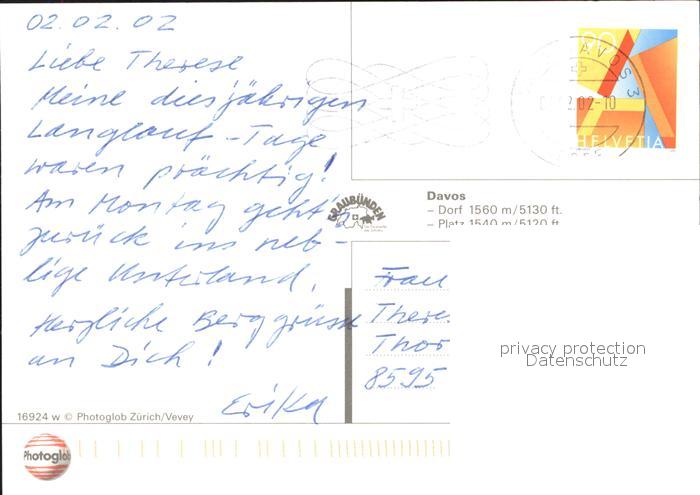 02.02.02
Liebe Therese
Meine diesjährigen
Langlauf-Tage
waren prächtig!
Am Montag geht's
zurück ins neb-
lige Unterland.
Herzliche Berggrüsse
an Dich!
Erika
16924 w © Photoglob Zürich/Vevey
Photoglob
90
HELVETIA
DAVOS 3
GRAUBÜNDEN
Davos
– Dorf 1560 m/5130 ft.
– Platz 1540 m/5120 ft.
Frau
There
Thor
8595
privacy protection
Datenschutz